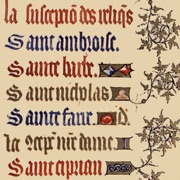 la suscepciõ des reliq̃s
Saint ambroise.
Sainte barbe.
Saint nicholas
Sainte fare.
la cõcep̃ n̄r̄e dame
Saint ciprian